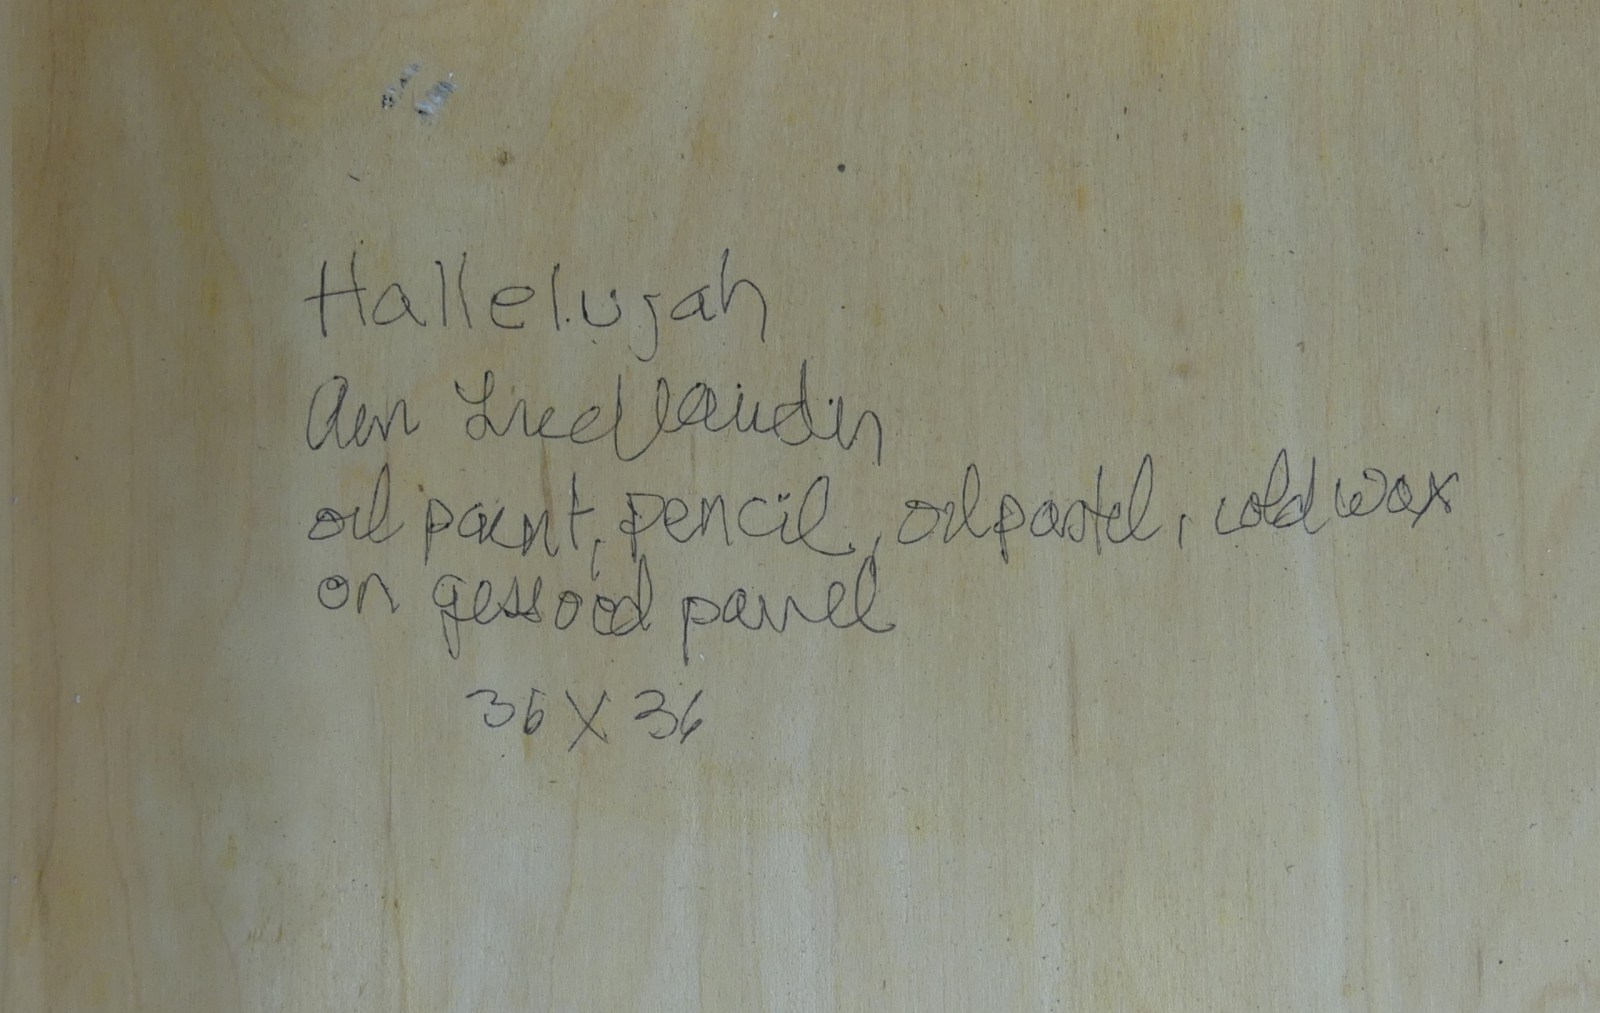 Hallelujah
Ann
oil paint, pencil, oil pastel, cold wax
on gessoed panel
36 X 36